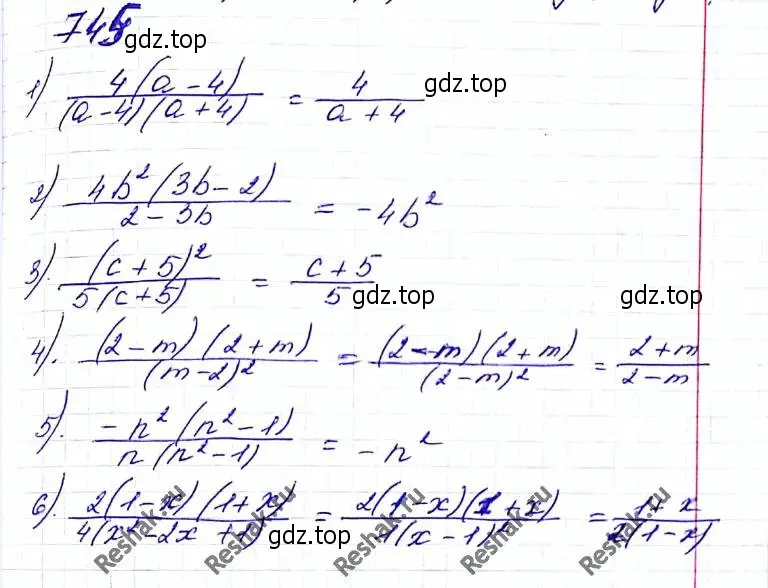 745
gdz.top
1) 4(a-4) / (a-4)(a+4) = 4 / a+4
gdz.top
2) 4b²(3b-2) / 2-3b = -4b²
3). (c+5)² / 5(c+5) = c+5 / 5
gdz.top gdz.top
4). (2-m)(2+m) / (m-2)² = (2-m)(2+m) / (2-m)² = 2+m / 2-m
5). -n²(n²-1) / n(n²-1) = -n²
6). 2(1-x)(1+x) / 4(x²-2x+1) = 2(1-x)(1+x) / 4(x-1)² = 1+x / 2(1-x)
Reshak.ru Reshak.ru gdz.top Reshak.ru Reshak.ru gdz.top